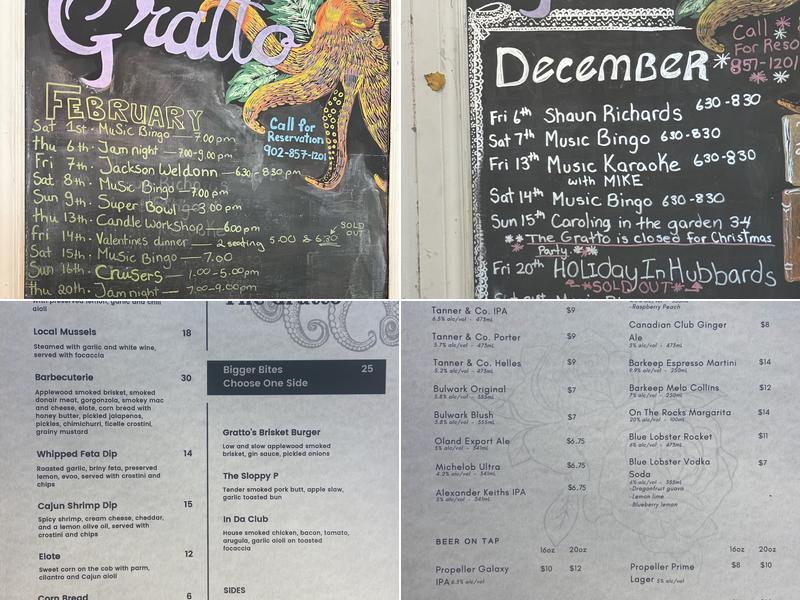 Gratto
FEBRUARY
Sat 1st. Music Bingo — 7.00pm
Thu 6th. Jam night — 7.00-9.00 pm
Fri 7th. Jackson Weldonn — 6:30 - 8:30 pm
Sat 8th. Music Bingo 7:00 pm
Sun 9th. Super Bowl — 3:00 pm
Thu 13th. Candle Workshop — 6:00pm
Fri 14th. Valentines dinner — 2 seating 5.00 & 6:30
SOLD
OUT
Sat 15th. Music Bingo — 7.00
Sun 16th. Chuisers — 1.00-5.00pm
Thu 20th. Jam night — 7.00-9.00pm
Call for
Reservation
902-857-1201
Call
For Reso
857-1201
DECEMBER
Fri 6th Shaun Richards 630-830
Sat 7th Music Bingo 630-830
Fri 13th Music Karaoke 630-830
with MIKE
Sat 14th Music Bingo 630-830
Sun 15th Caroling in the garden 3-4
The Gratto is closed for Christmas
Party.
Fri 20th HOLiday In Hubbards
SOLD OUT
with preserved lemon, garlic and chili
aioli
Local Mussels 18
Steamed with garlic and white wine,
served with focaccia
Barbecuterie 30
Applewood smoked brisket, smoked
donair meat, gorgonzola, smokey mac
and cheese, elote, corn bread with
honey butter, pickled jalapenos,
pickles, chimichurri, ficelle crostini,
grainy mustard
Whipped Feta Dip 14
Roasted garlic, briny feta, preserved
lemon, evoo, served with crostini and
chips
Cajun Shrimp Dip 15
Spicy shrimp, cream cheese, cheddar,
and a lemon olive oil, served with
crostini and chips
Elote 12
Sweet corn on the cob with parm,
cilantro and Cajun aioli
Corn Bread 6
The Gratto
Bigger Bites 25
Choose One Side
Gratto's Brisket Burger
Low and slow applewood smoked
brisket, gin sauce, pickled onions
The Sloppy P
Tender smoked pork butt, apple slaw,
garlic toasted bun
In Da Club
House smoked chicken, bacon, tomato,
arugula, garlic aioli on toasted
focaccia
SIDES
Tanner & Co. IPA $9
6.5% alc/vol - 473mL
Tanner & Co. Porter $9
5.7% alc/vol - 473mL
Tanner & Co. Helles $9
5.2% alc/vol - 473mL
Bulwark Original $7
5.8% alc/vol - 355mL
Bulwark Blush $7
5.8% alc/vol - 355mL
Oland Export Ale $6.75
5% alc/vol - 341mL
Michelob Ultra $6.75
4.2% alc/vol - 341mL
Alexander Keiths IPA $6.75
5% alc/vol - 341mL
-Raspberry Peach
Canadian Club Ginger $8
Ale
5% alc/vol - 473mL
Barkeep Espresso Martini $14
9.9% alc/vol - 250mL
Barkeep Melo Collins $12
7% alc/vol - 250mL
On The Rocks Margarita $14
20% alc/vol - 100mL
Blue Lobster Rocket $11
6% alc/vol - 473mL
Blue Lobster Vodka $7
Soda
6% alc/vol - 355mL
-Dragonfruit guava
-Lemon lime
-Blueberry lemon
BEER ON TAP
16oz 20oz
Propeller Galaxy $10 $12
IPA 6.5% alc/vol
16oz 20oz
Propeller Prime $8 $10
Lager 5% alc/vol